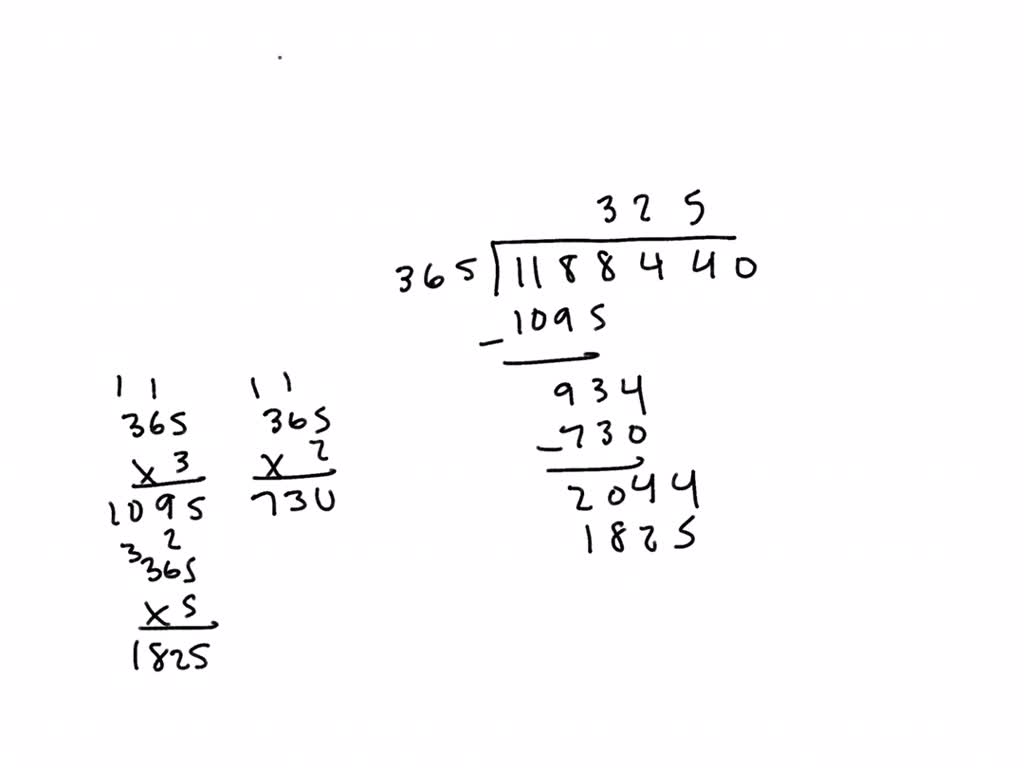 3 2 5
365 1188440
- 1095
934
- 730
2044
1825
1 1
365
x 3
1095
1 1
365
x 2
730
3 2
365
x 5
1825